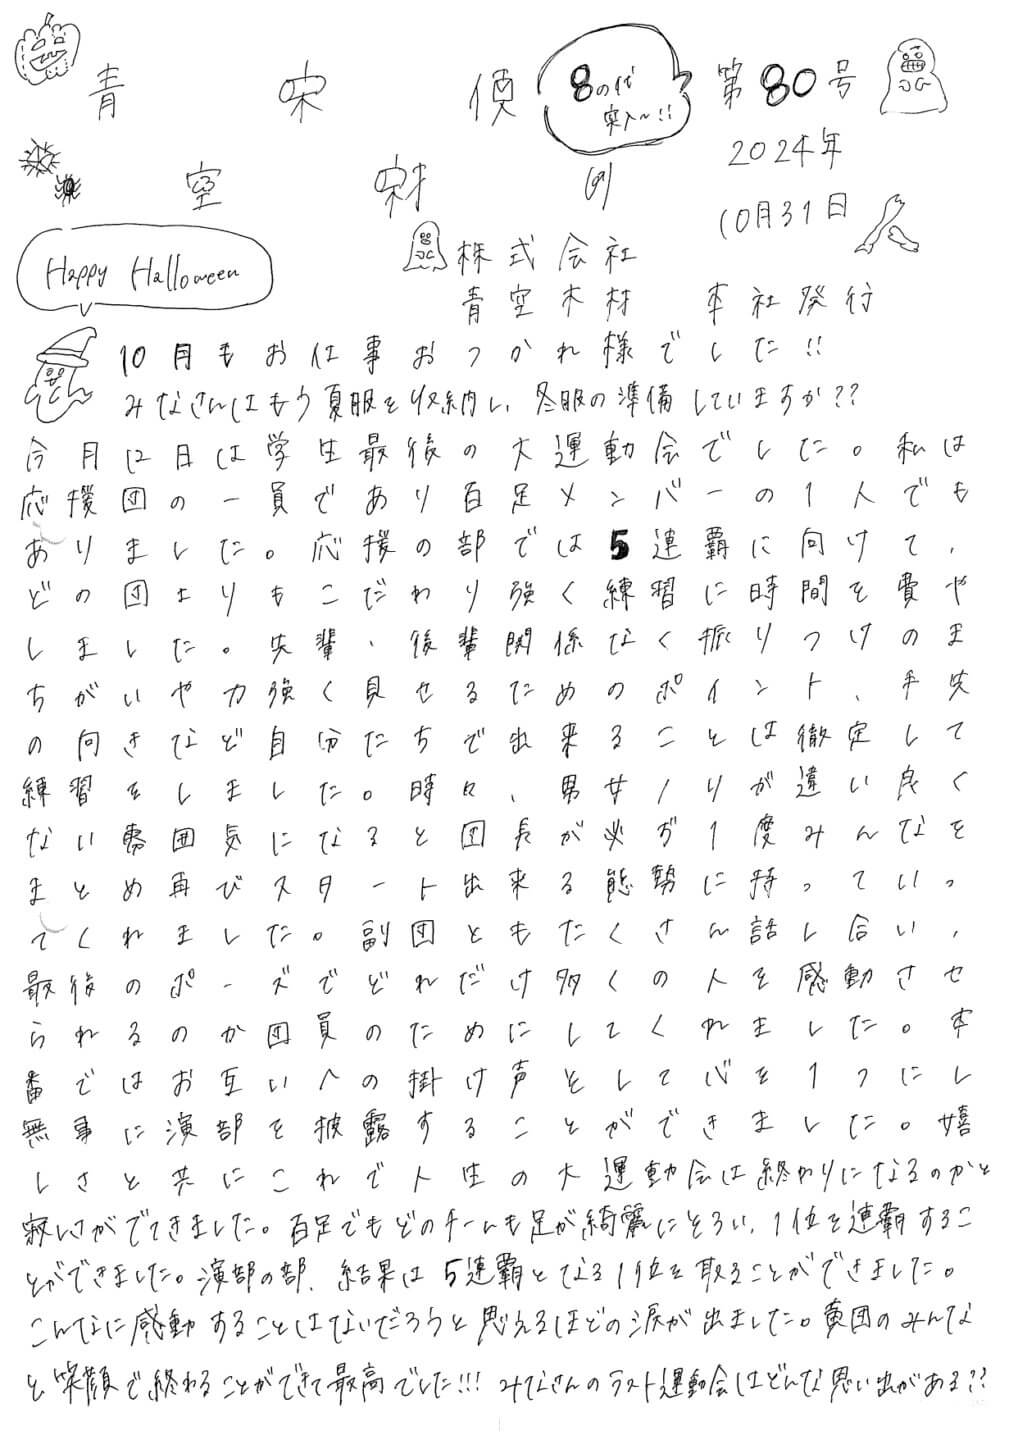 8の代
突入〜!!
第80号
2024年
10月31日
Happy Halloween
株式会社
青空木材 本社発行
10月もお仕事おつかれ様でした!!
みなさんはもう夏服を収納し、冬服の準備していますか??
今月12日は学生最後の大運動会でした。私は
応援団の一員であり百足メンバーの1人でも
ありました。応援の部では5連覇に向けて、
どの団よりもこだわり強く練習に時間を費や
しました。先輩、後輩関係なく振りつけのま
ちがいや力強く見せるためのポイント、手先
の向きなど自分たちで出来ることは徹底して
練習をしました。時々、男女ノリが違い良く
ない雰囲気になると団長が必ず1度みんなを
まとめ再びスタート出来る態勢に持っていっ
てくれました。副団ともたくさん話し合い、
最後のポーズでどれだけ多くの人を感動させ
られるのか団員のためにしてくれました。本
番ではお互いへの掛け声として心を1つにし
無事に演部を披露することができました。嬉
しさと共にこれで人生の大運動会は終わりになるのかと
寂しさがでてきました。百足でもどのチームも足が綺麗にそろい、1位を連覇するこ
とができました。演部の部、結果は5連覇となる1位を取ることができました。
こんなに感動することはないだろうと思えるほどの涙が出ました。黄団のみんな
と笑顔で終わることができて最高でした!!! みなさんのラスト運動会はどんな思い出がある??